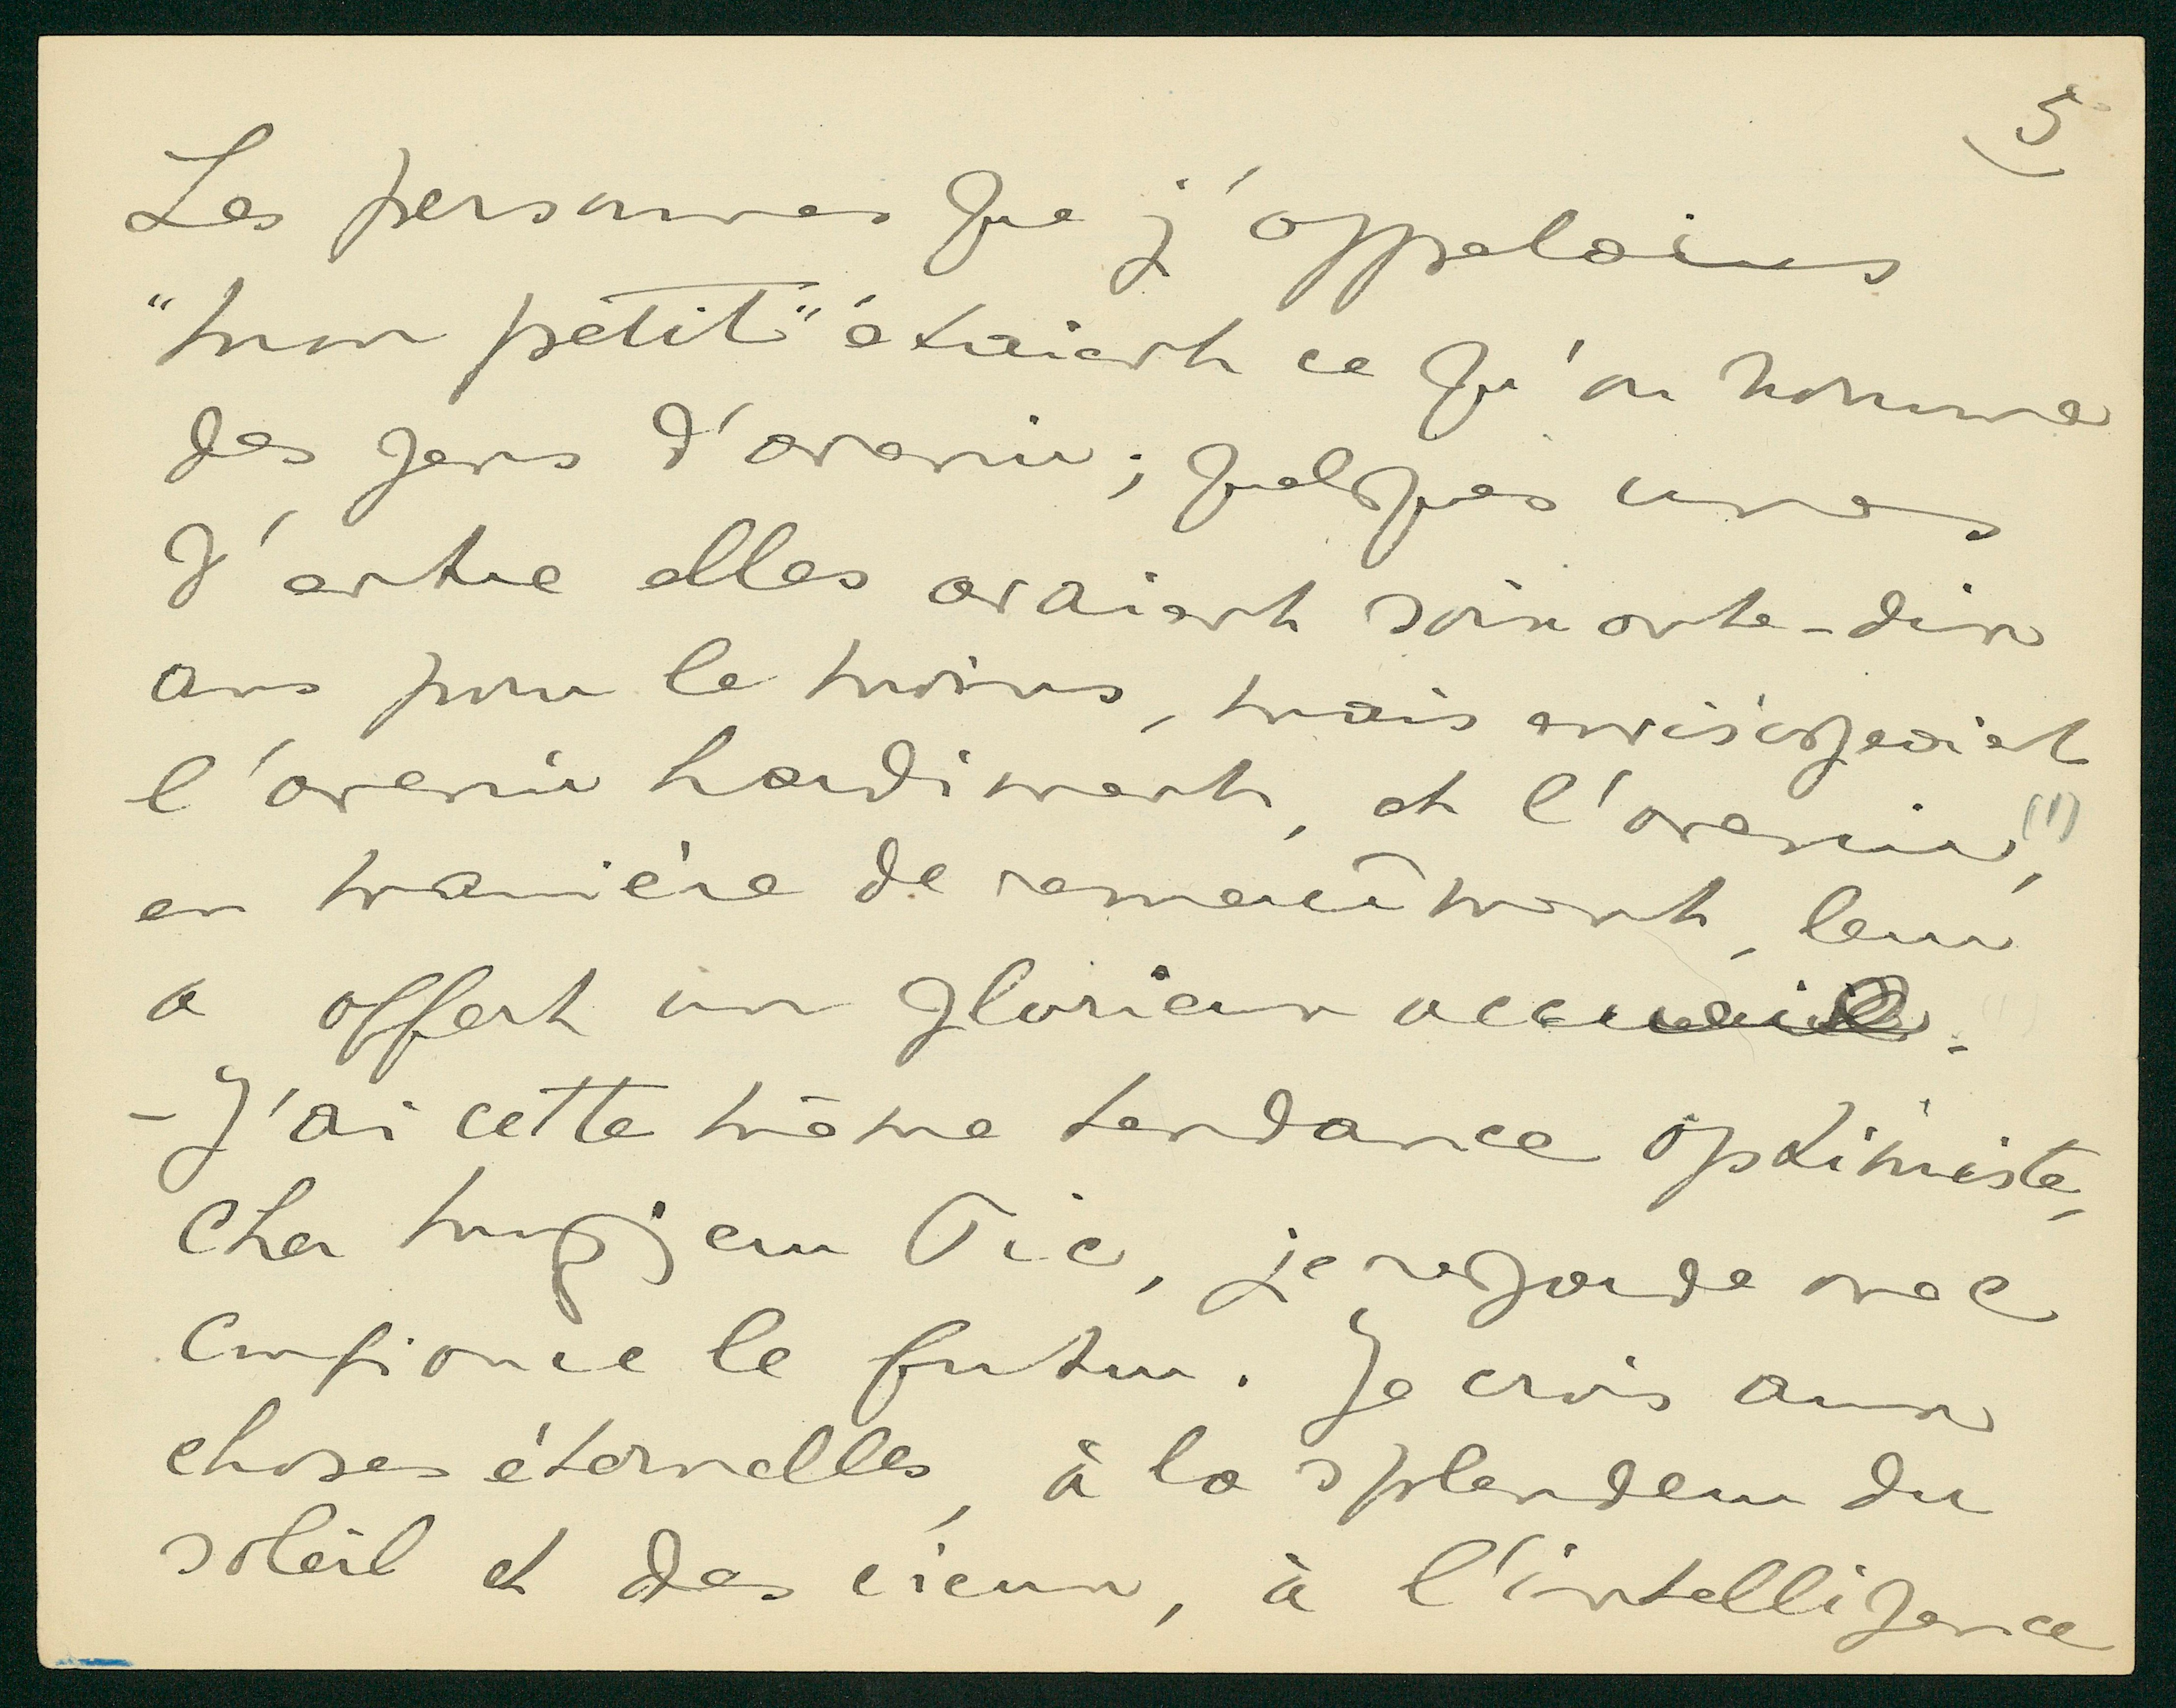 5
Les personnes que j'appelais
"mon petit" étaient ce qu'on nomme
des gens d'avenir; quelques unes
d'entre elles avaient soixante-dix
ans pour le moins, mais envisageaient
l'avenir hardiment, et l'avenir, (1)
en manière de remerciment, leur
a offert un glorieux accueil.
- J'ai cette même tendance optimiste,
cher Monsieur Pic, je regarde avec
confiance le futur. Je crois aux
choses éternelles, à la splendeur du
soleil et des cieux, à l'intelligence